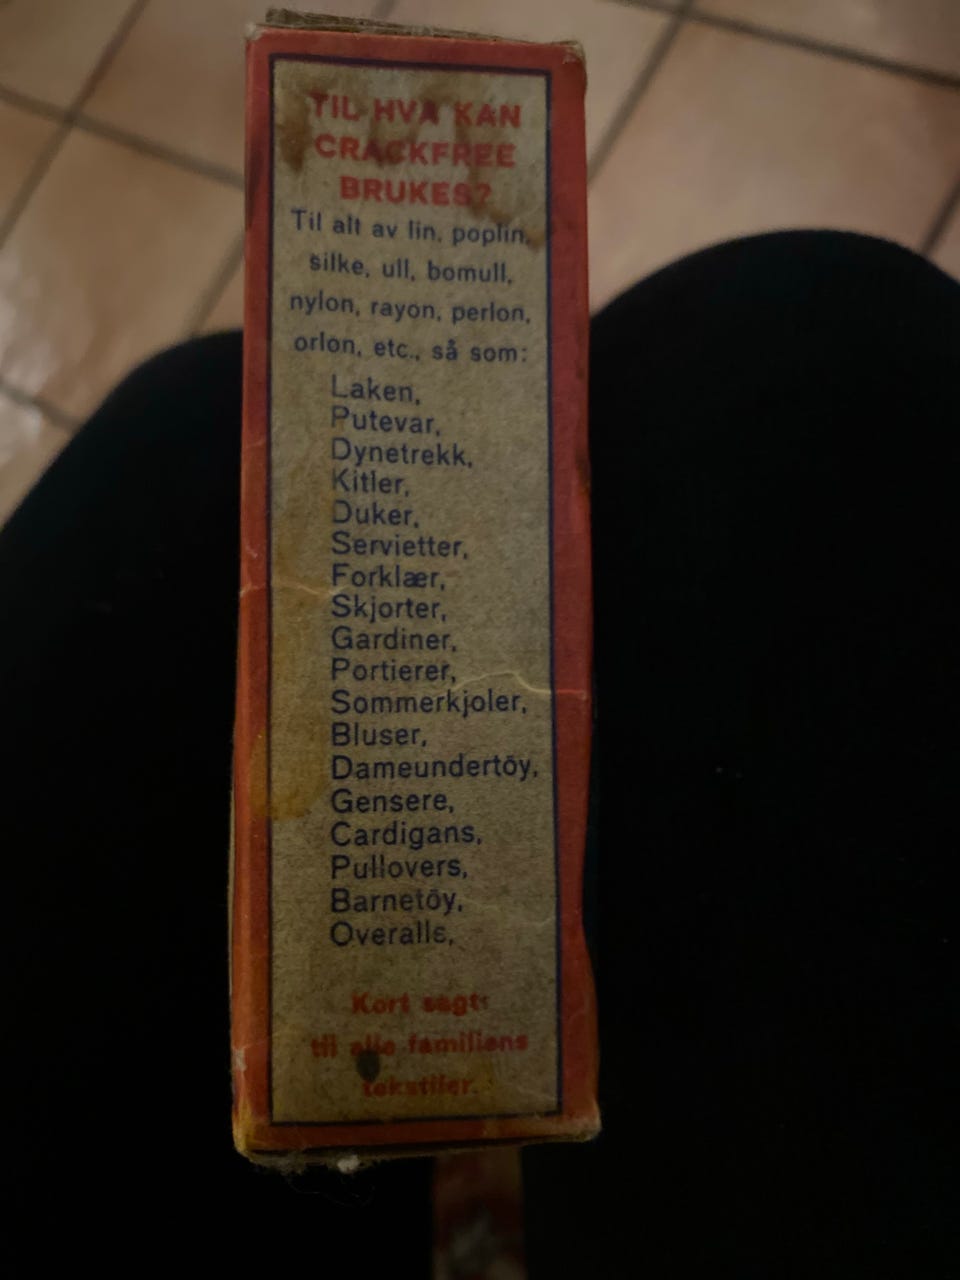 TIL HVA KAN
CRACKFREE
BRUKES?
Til alt av lin, poplin,
silke, ull, bomull,
nylon, rayon, perlon,
orlon, etc., så som:
Laken,
Putevar,
Dynetrekk,
Kitler,
Duker,
Servietter,
Forklær,
Skjorter,
Gardiner,
Portierer,
Sommerkjoler,
Bluser,
Dameundertöy,
Gensere,
Cardigans,
Pullovers,
Barnetöy,
Overalls,
Kort sagt:
til alle familiens
tekstiler.